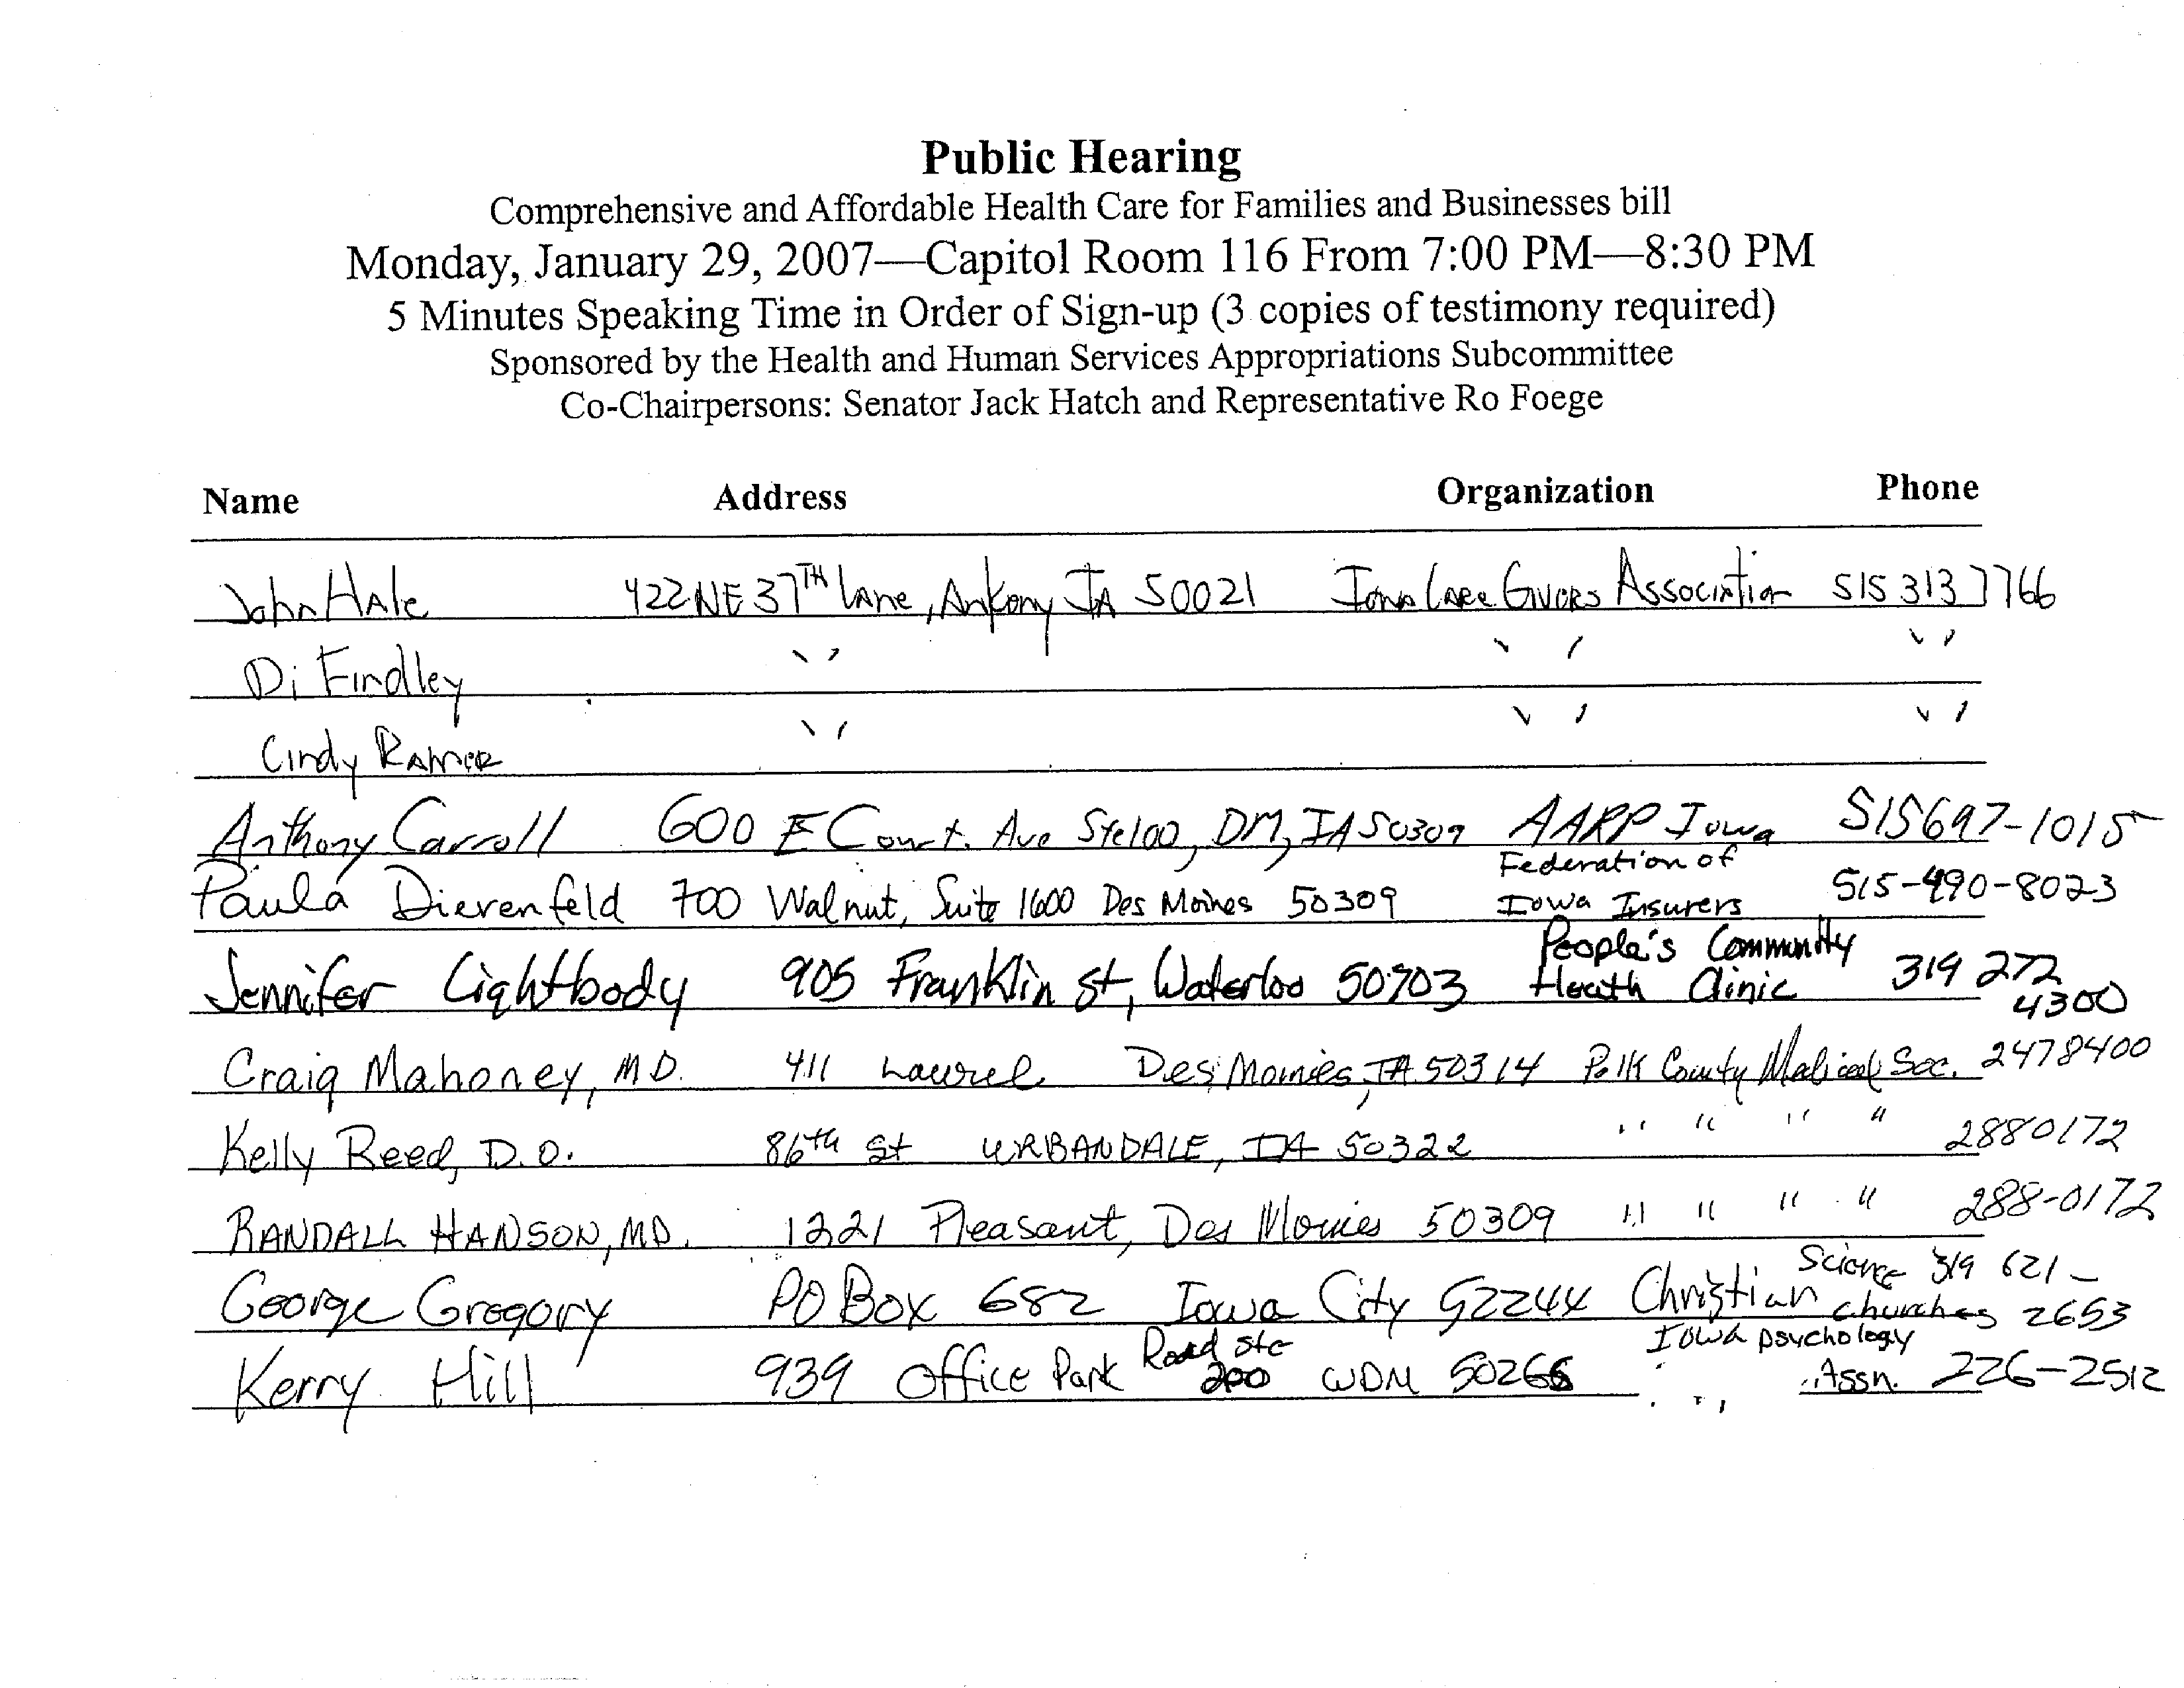 Public Hearing
Comprehensive and Affordable Health Care for Families and Businesses bill
Monday, January 29, 2007—Capitol Room 116 From 7:00 PM—8:30 PM
5 Minutes Speaking Time in Order of Sign-up (3 copies of testimony required)
Sponsored by the Health and Human Services Appropriations Subcommittee
Co-Chairpersons: Senator Jack Hatch and Representative Ro Foege
Name Address Organization Phone
John Hale 422 NE 37TH Lane, Ankeny IA 50021 Iowa CareGivers Association 515 313 7766
Di Findley " " "
Cindy Ramer " " "
Anthony Carroll 600 E Court Ave Ste 100, DM, IA 50309 AARP Iowa 515 697-1015
Paula Dierenfeld 700 Walnut, Suite 1600 Des Moines 50309 Federation of Iowa Insurers 515-490-8023
Jennifer Lightbody 905 Franklin St, Waterloo 50703 People's Community Health Clinic 319 272 4300
Craig Mahoney, MD. 411 Laurel Des Moines, IA 50314 Polk County Medical Soc. 2478400
Kelly Reed, D.O. 86th St URBANDALE, IA 50322 " " " " 2880172
RANDALL HANSON, MD. 1221 Pleasant, Des Moines 50309 " " " " 288-0172
George Gregory PO Box 682 Iowa City 52244 Christian Science Churches 319 621-2653
Kerry Hill 939 Office Park Road Ste 200 WDM 50266 Iowa Psychology Assn. 226-2512